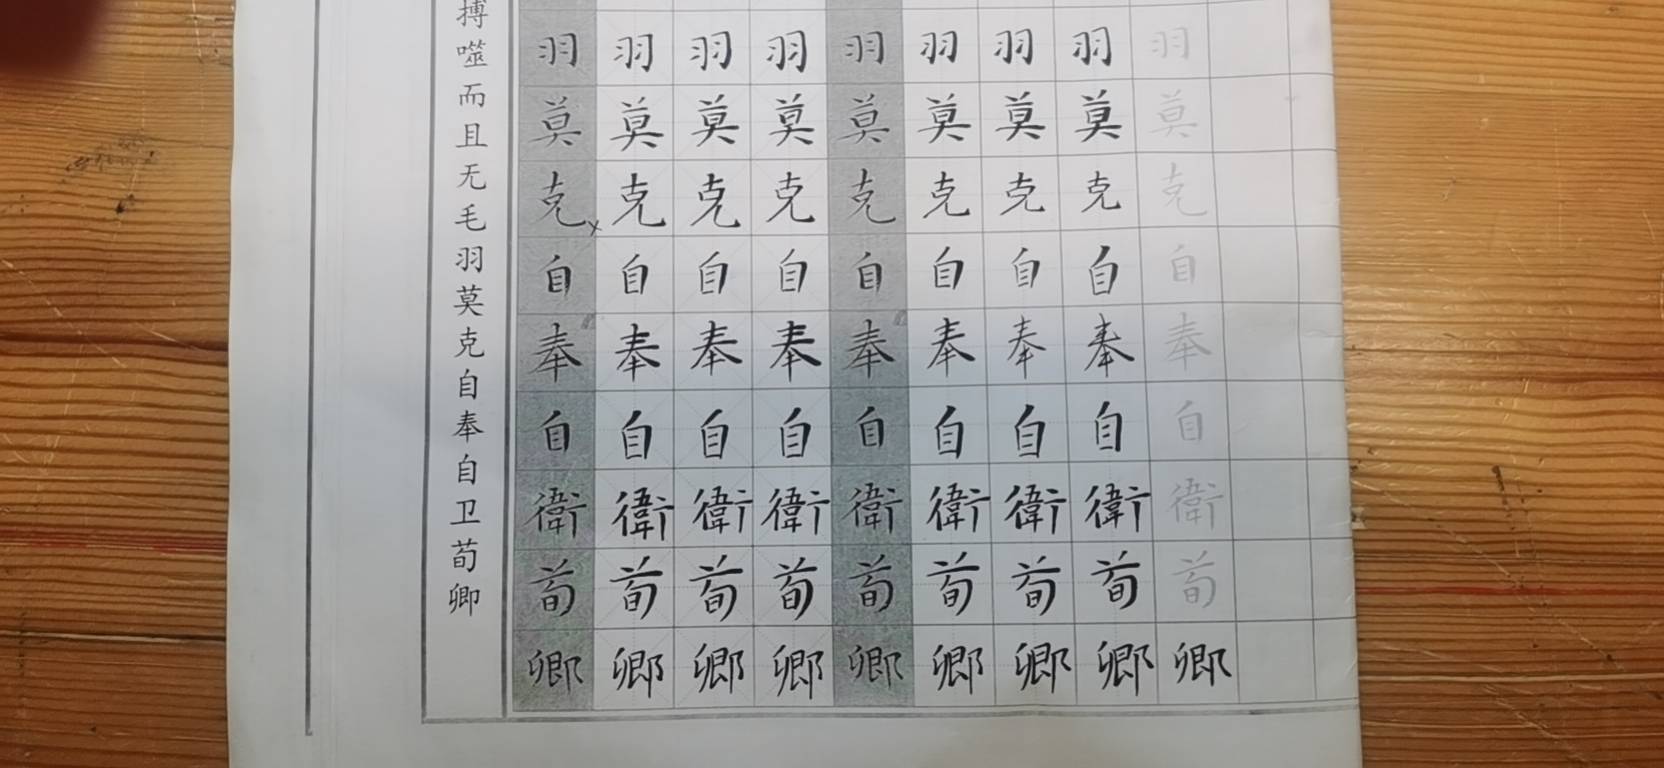 搏噬而且无毛羽莫克自奉自卫荀卿
羽羽羽羽羽羽羽羽羽
莫莫莫莫莫莫莫莫莫
克克克克克克克克克
自自自自自自自自自
奉奉奉奉奉奉奉奉奉
自自自自自自自自自
衛衛衛衛衛衛衛衛衛
荀荀荀荀荀荀荀荀荀
卿卿卿卿卿卿卿卿卿